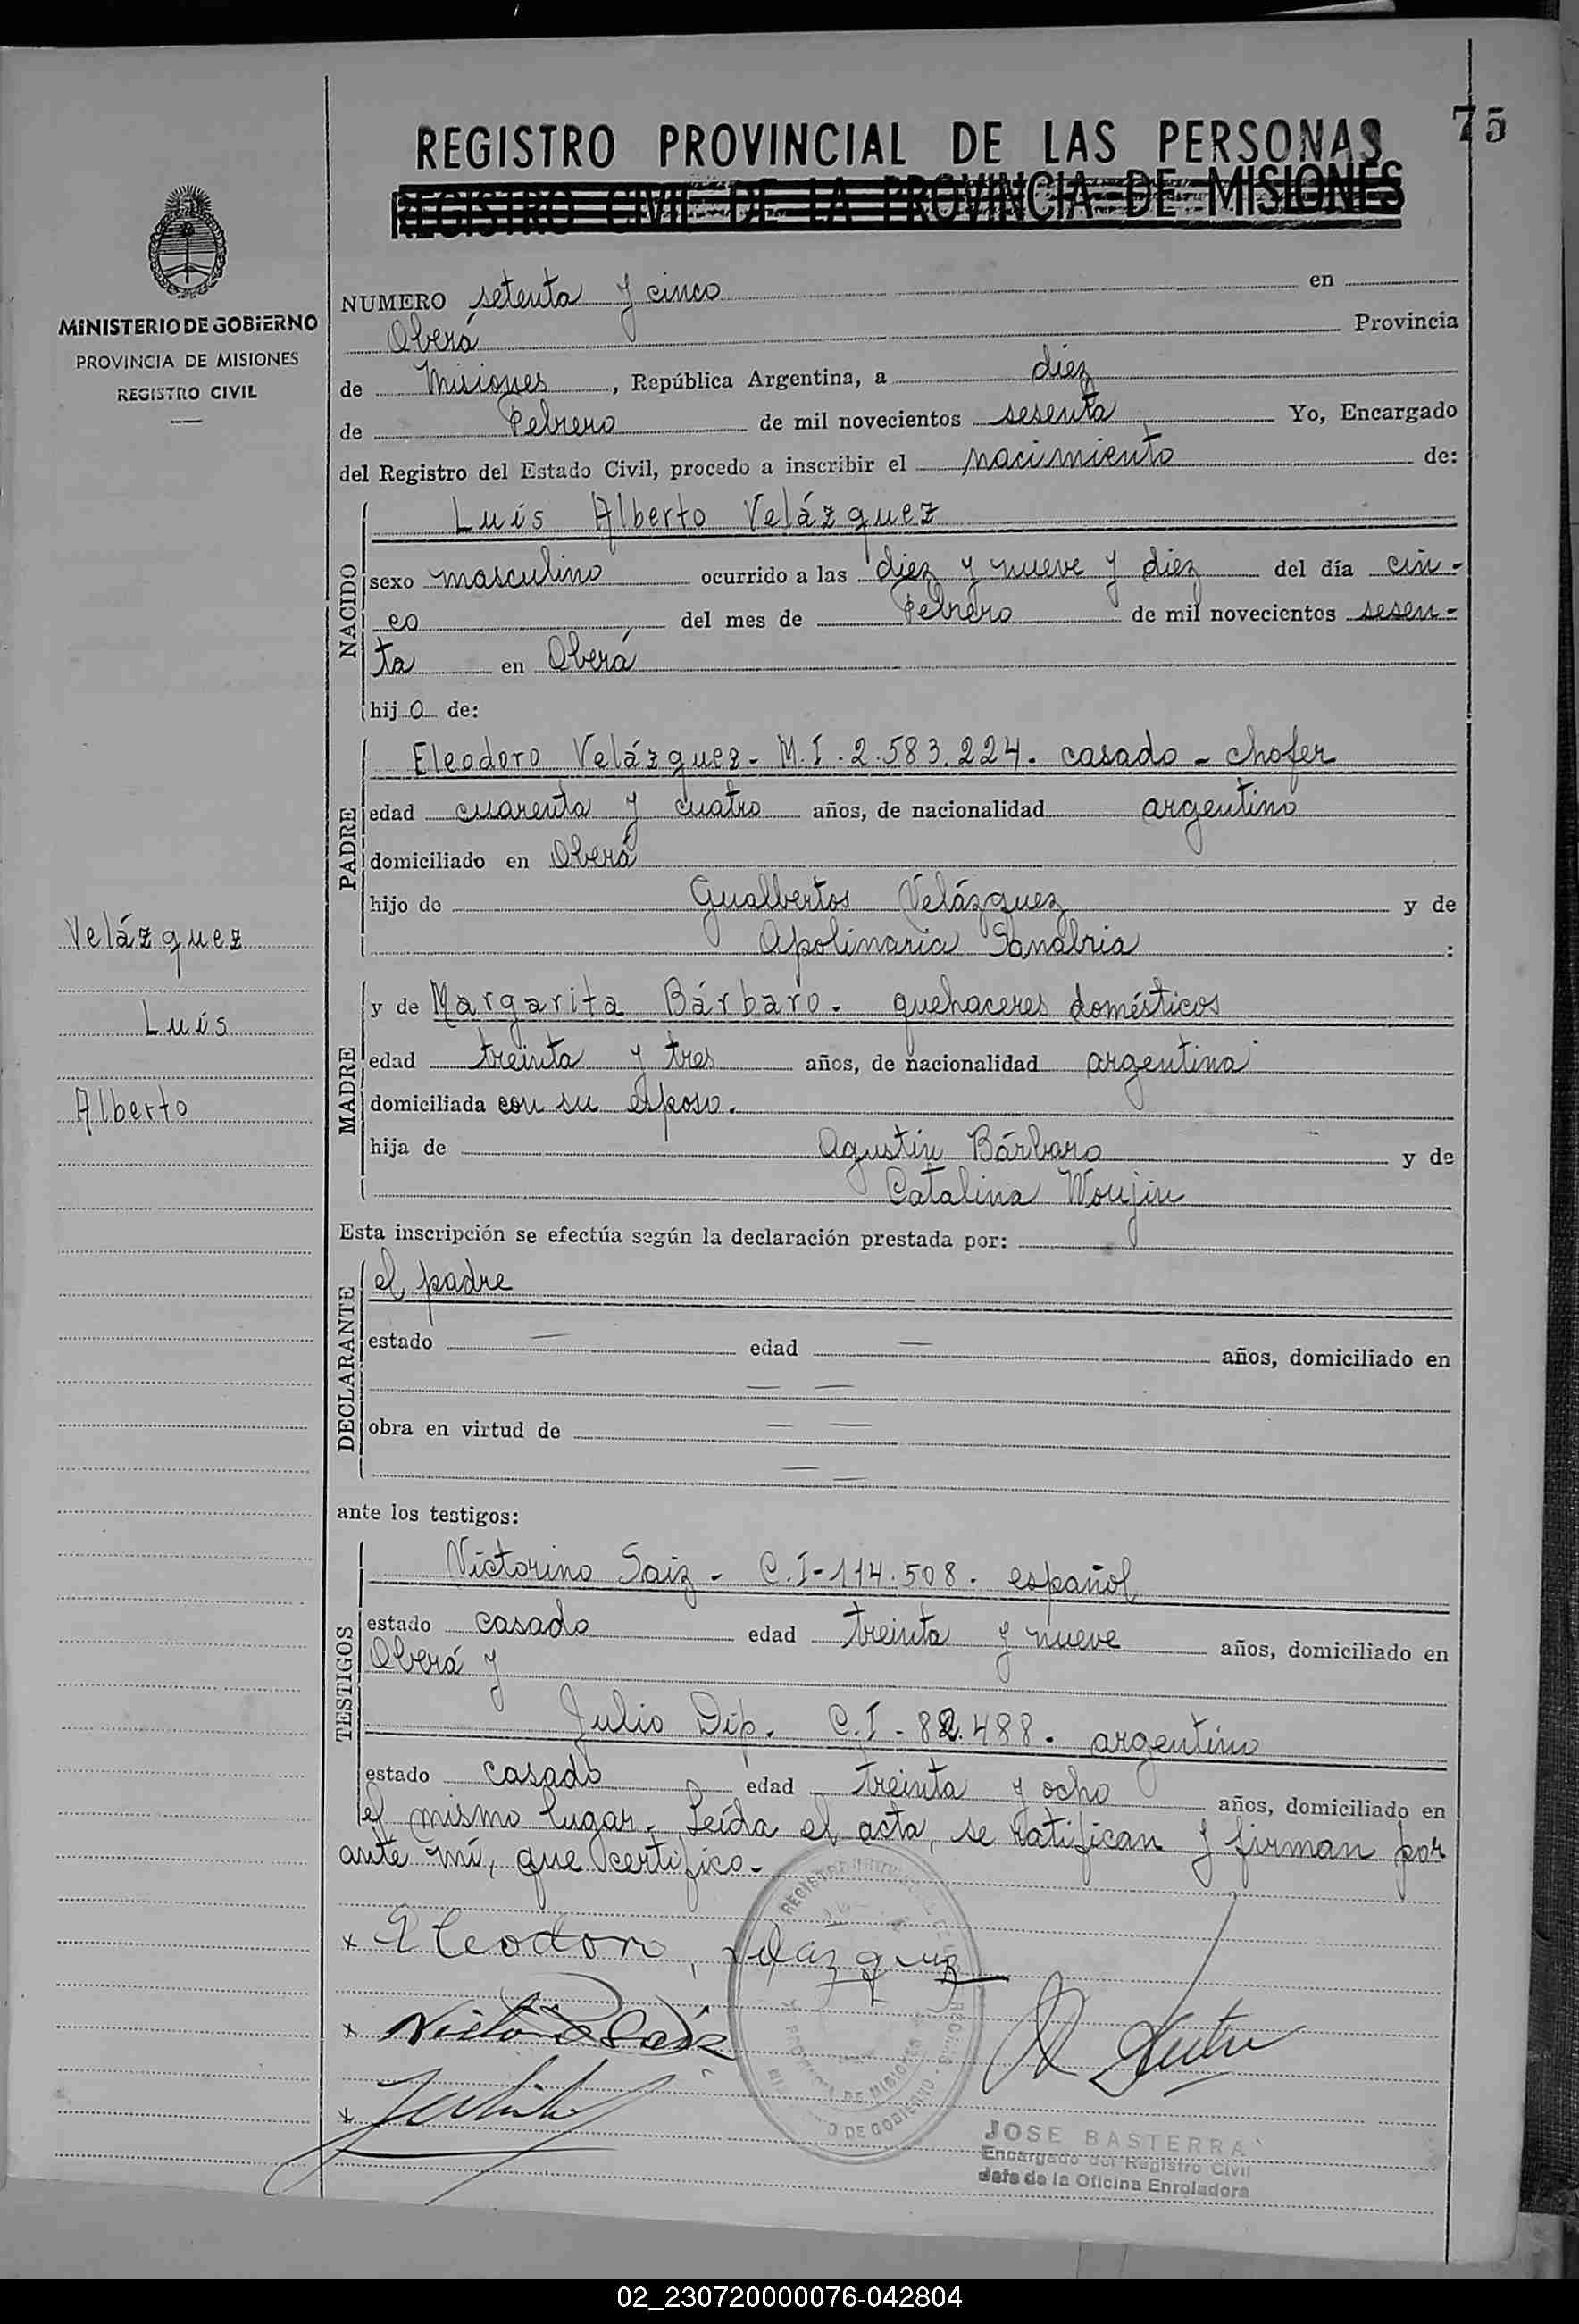 75
REGISTRO PROVINCIAL DE LAS PERSONAS
REGISTRO CIVIL DE LA PROVINCIA DE MISIONES
MINISTERIO DE GOBIERNO
PROVINCIA DE MISIONES
REGISTRO CIVIL
NUMERO setenta y cinco en
Oberá Provincia
de Misiones, República Argentina, a diez
de Febrero de mil novecientos sesenta Yo, Encargado
del Registro del Estado Civil, procedo a inscribir el nacimiento de:
NACIDO
Luis Alberto Velázquez
sexo masculino ocurrido a las diez y nueve y diez del día cin-
co del mes de Febrero de mil novecientos sesen-
ta en Oberá
hijo de:
PADRE
Eleodoro Velázquez - M.I. 2.583.224. casado - chofer
edad cuarenta y cuatro años, de nacionalidad argentino
domiciliado en Oberá
hijo de Gualbertos Velázquez y de
Apolinaria Sanabria :
MADRE
y de Margarita Bárbaro. quehaceres domésticos
edad treinta y tres años, de nacionalidad argentina
domiciliada con su esposo.
hija de Agustín Bárbaro y de
Catalina Woujiu
Velázquez
Luis
Alberto
Esta inscripción se efectúa según la declaración prestada por:
DECLARANTE
el padre
estado — edad — años, domiciliado en
— —
obra en virtud de — —
— —
ante los testigos:
TESTIGOS
Victorino Saiz - C.I-114.508. español
estado casado edad treinta y nueve años, domiciliado en
Oberá y
Julio Dip. C.I - 82.488. argentino
estado casado edad treinta y ocho años, domiciliado en
el mismo lugar. Leída el acta, se ratifican y firman por
ante mí, que certifico.-
x Eleodoro Velazquez
x Victorino Saiz
x
JOSE BASTERRA
Encargado del Registro Civil
Jefe de la Oficina Enroladora
02_230720000076-042804